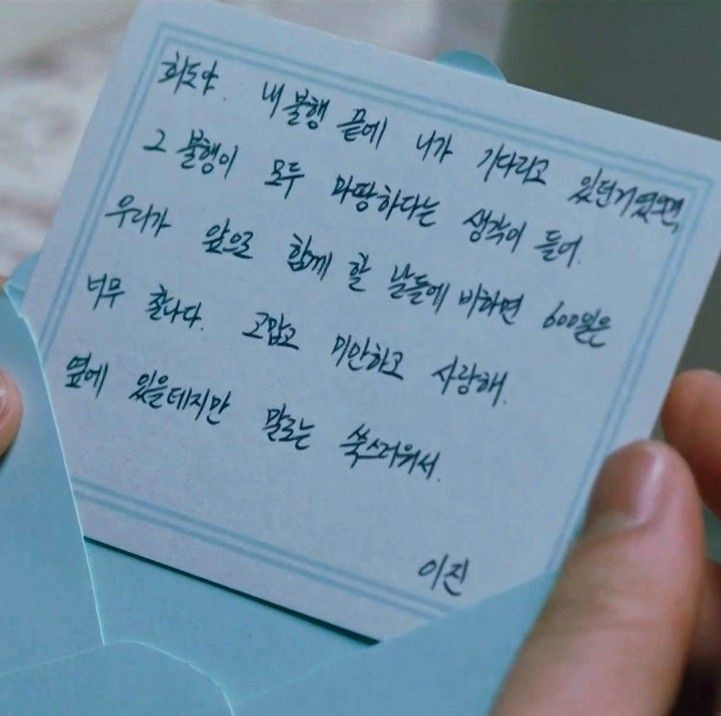 희도야. 내 불행 끝에 니가 기다리고 있던거였으면
그 불행이 모두 마땅하다는 생각이 들어.
우리가 앞으로 함께 할 날들에 비하면 600일은
너무 찰나다. 고맙고 미안하고 사랑해.
옆에 있을테지만 말로는 쑥스러워서.
이진